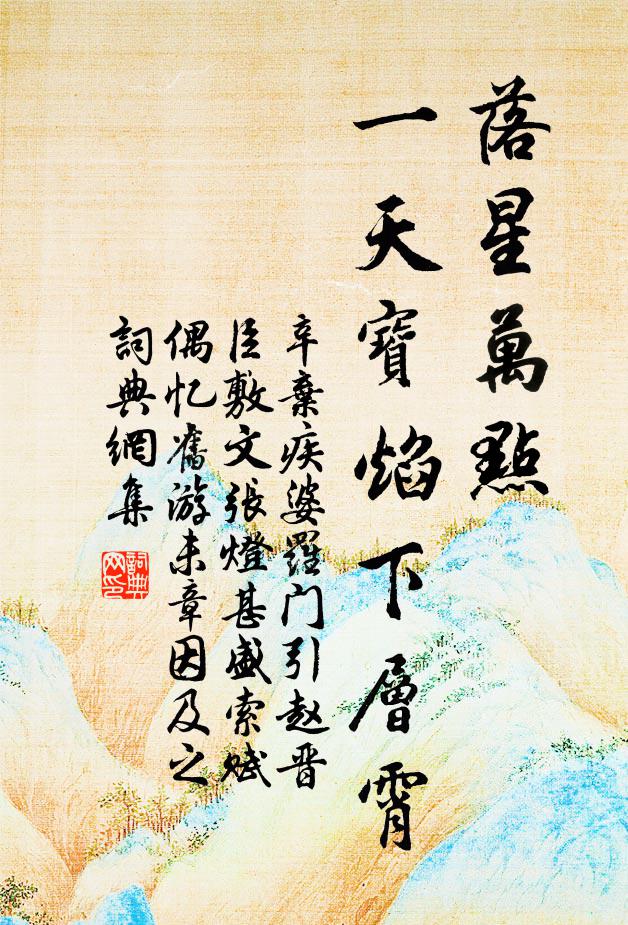 落星萬點
一天寶焰下層霄
辛棄疾婆羅门引赵晋
臣敷文張燈甚盛索赋
偶忆舊游末章因及之
詞典網集
詞典
网印